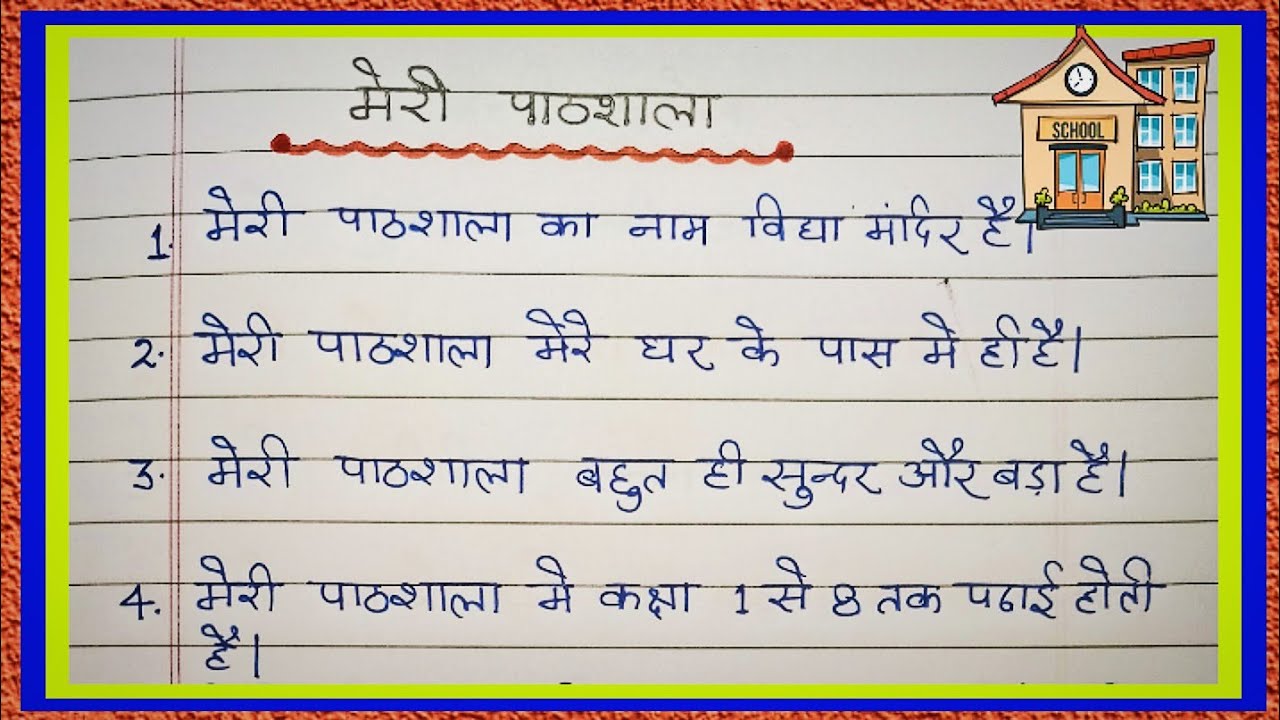 मेरी पाठशाला
SCHOOL
1. मेरी पाठशाला का नाम विद्यां मंदिर है।
2. मेरी पाठशाला मेरे घर के पास मे ही है।
3. मेरी पाठशाला बहुत ही सुन्दर और बड़ा है।
4. मेरी पाठशाला मे कक्षा 1 से 8 तक पढाई होती
है।